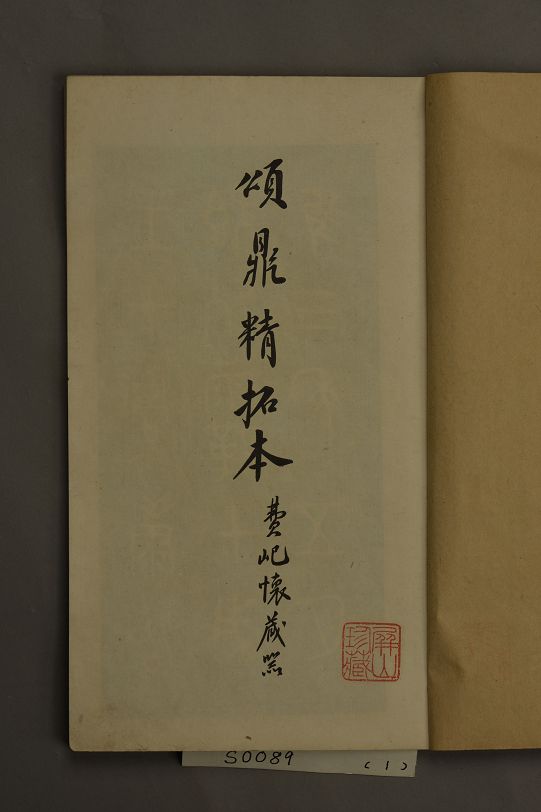 頌鼎精拓本
費屺懷藏器
屏山珍藏
S0089
(1)